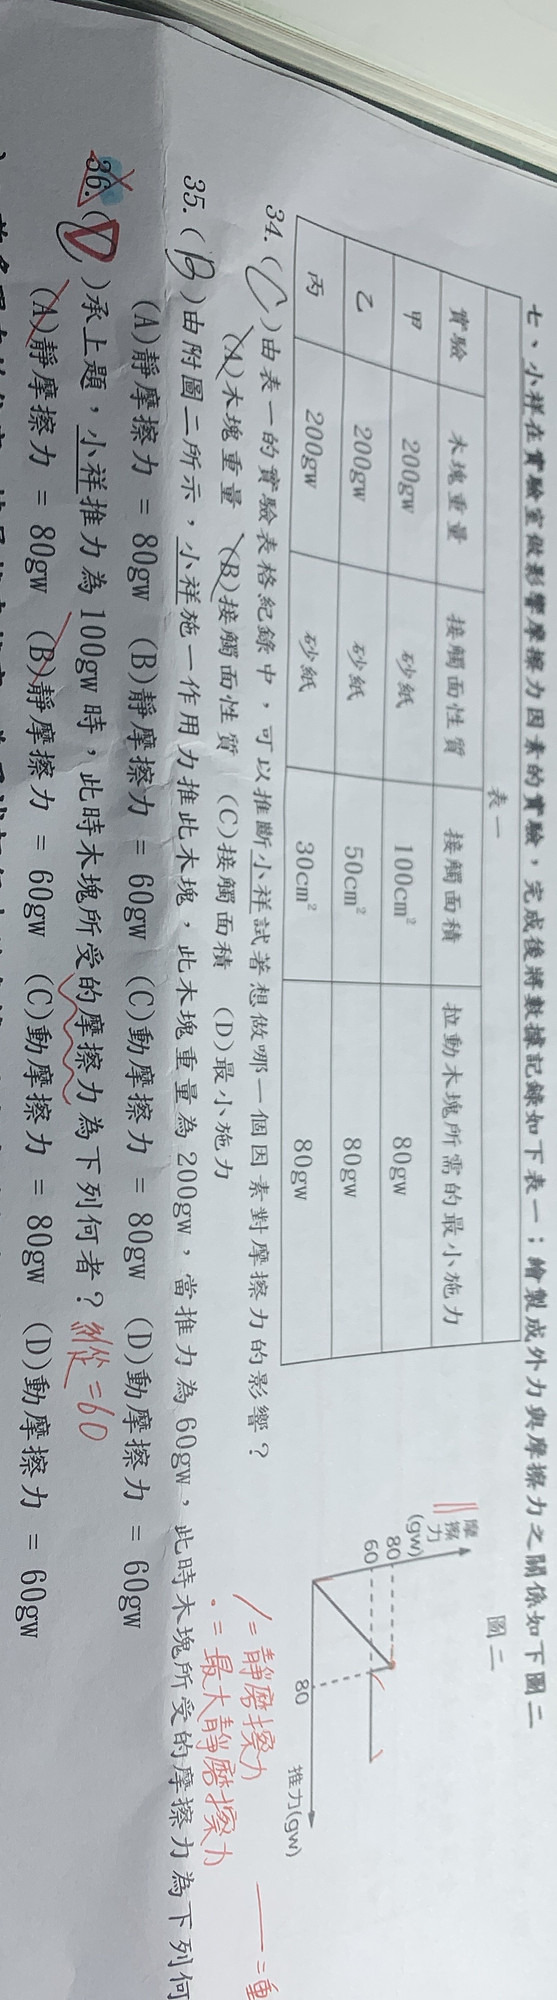 七、小祥在實驗室做影響摩擦力因素的實驗，完成後將數據記錄如下表一；繪製成外力與摩擦力之關係如下圖二
表一
實驗 木塊重量 接觸面性質 接觸面積 拉動木塊所需的最小施力
甲 200gw 砂紙 100cm² 80gw
乙 200gw 砂紙 50cm² 80gw
丙 200gw 砂紙 30cm² 80gw
圖二
摩擦力(gw)
80
60
80
推力(gw)
34.(C)由表一的實驗表格紀錄中，可以推斷小祥試著想做哪一個因素對摩擦力的影響？
(A)木塊重量 (B)接觸面性質 (C)接觸面積 (D)最小施力
/=靜磨擦力
·=最大靜磨擦力
35.(B)由附圖二所示，小祥施一作用力推此木塊，此木塊重量為200gw，當推力為60gw，此時木塊所受的摩擦力為下列何
(A)靜摩擦力 = 80gw (B)靜摩擦力 = 60gw (C)動摩擦力 = 80gw (D)動摩擦力 = 60gw
36.(D)承上題，小祥推力為100gw時，此時木塊所受的摩擦力為下列何者？
=60
(A)靜摩擦力 = 80gw (B)靜摩擦力 = 60gw (C)動摩擦力 = 80gw (D)動摩擦力 = 60gw